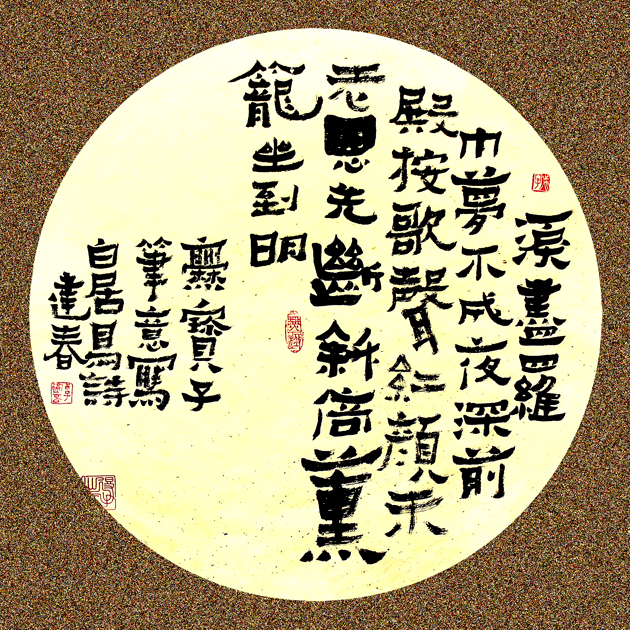 淚盡羅
巾夢不成夜深前
殿按歌聲紅顏未
老恩先斷斜倚薰
籠坐到明
爨寶子
筆意寫
白居易詩
達春